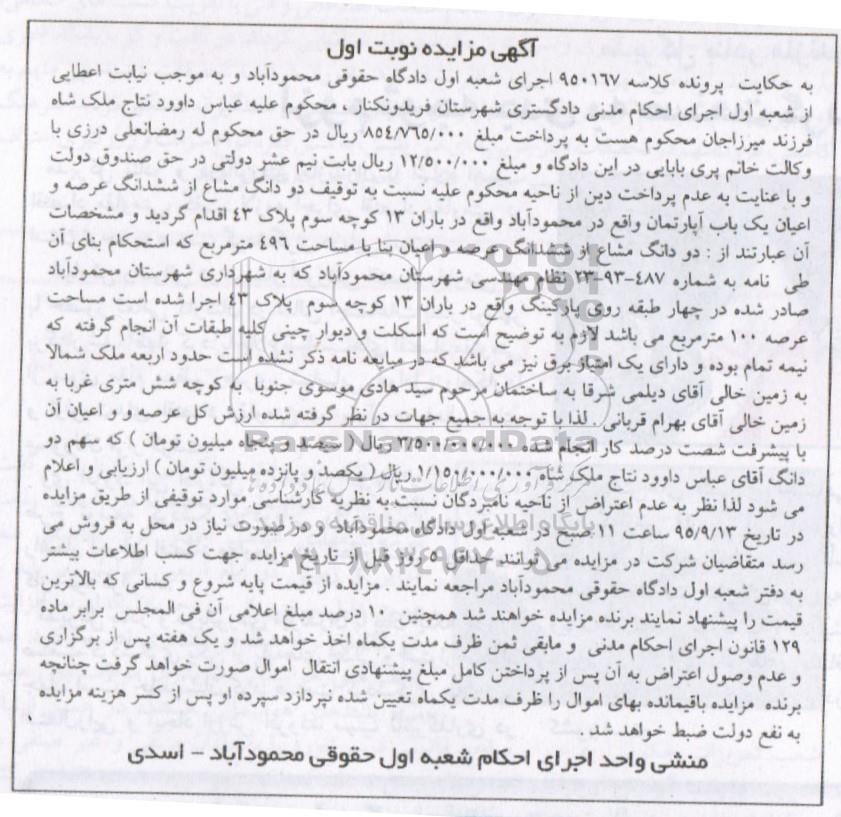 آگهی مزایده نوبت اول
به حکایت پرونده کلاسه ۹۵۰۱۶۷ اجرای شعبه اول دادگاه حقوقی محمودآباد و به موجب نیابت اعطایی
از شعبه اول اجرای احکام مدنی دادگستری شهرستان فریدونکنار ، محکوم علیه عباس داوود نتاج ملک شاه
فرزند میرزاجان محکوم هست به پرداخت مبلغ ۸۵٤/۷٦۵/۰۰۰ ریال در حق محکوم له رمضانعلی درزی با
وکالت خانم پری بابایی در این دادگاه و مبلغ ۱۲/۵۰۰/۰۰۰ ریال بابت نیم عشر دولتی در حق صندوق دولت
و با عنایت به عدم پرداخت دین از ناحیه محکوم علیه نسبت به توقیف دو دانگ مشاع از ششدانگ عرصه و
اعیان یک باب آپارتمان واقع در محمودآباد واقع در باران ۱۳ کوچه سوم پلاک ٤۳ اقدام گردید و مشخصات
آن عبارتند از : دو دانگ مشاع از ششدانگ عرصه و اعیان بنا با مساحت ٤۹٦ مترمربع که استحکام بنای آن
طی نامه به شماره ٤۸۷-۹۳-۲۳ نظام مهندسی شهرستان محمودآباد که به شهرداری شهرستان محمودآباد
صادر شده در چهار طبقه روی پارکینگ واقع در باران ۱۳ کوچه سوم پلاک ٤۳ اجرا شده است مساحت
عرصه ۱۰۰ مترمربع می باشد لازم به توضیح است که اسکلت و دیوار چینی کلیه طبقات آن انجام گرفته که
نیمه تمام بوده و دارای یک امتیاز برق نیز می باشد کمتر مبایعه نامه ذکر نشده است حدود اربعه ملک شمالا
به زمین خالی آقای دیلمی شرقا به ساختمان مرحوم سید هادی موسوی جنوبا به کوچه شش متری غربا به
زمین خالی آقای بهرام قربانی . لذا با توجه به جمیع جهات در نظر گرفته شده ارزش کل عرصه و و اعیان آن
با پیشرفت شصت درصد کار انجام شده ۳/۵۰۰/۰۰۰/۰۰۰ ریال ( سیصد و پنجاه میلیون تومان ) که سهم دو
دانگ آقای عباس داوود نتاج ملک شاه ۱/۱۵۰/۰۰۰/۰۰۰ ریال ( یکصد و پانزده میلیون تومان ) ارزیابی و اعلام
می شود لذا نظر به عدم اعتراض از ناحیه نامبردگان نسبت به نظریه کارشناسی موارد توقیفی از طریق مزایده
در تاریخ ۹۵/۹/۱۳ ساعت ۱۱ صبح در شعبه اول دادگاه محمودآباد و در صورت نیاز در محل به فروش می
رسد متقاضیان شرکت در مزایده می توانند حداقل ۵ روز قبل از تاریخ مزایده جهت کسب اطلاعات بیشتر
به دفتر شعبه اول دادگاه حقوقی محمودآباد مراجعه نمایند . مزایده از قیمت پایه شروع و کسانی که بالاترین
قیمت را پیشنهاد نمایند برنده مزایده خواهند شد همچنین ۱۰ درصد مبلغ اعلامی آن فی المجلس برابر ماده
۱۲۹ قانون اجرای احکام مدنی و مابقی ثمن ظرف مدت یکماه اخذ خواهد شد و یک هفته پس از برگزاری
و عدم وصول اعتراض به آن پس از پرداختن کامل مبلغ پیشنهادی انتقال اموال صورت خواهد گرفت چنانچه
برنده مزایده باقیمانده بهای اموال را ظرف مدت یکماه تعیین شده نپردازد سپرده او پس از کسر هزینه مزایده
به نفع دولت ضبط خواهد شد.
منشی واحد اجرای احکام شعبه اول حقوقی محمودآباد – اسدی
ParsNamadData